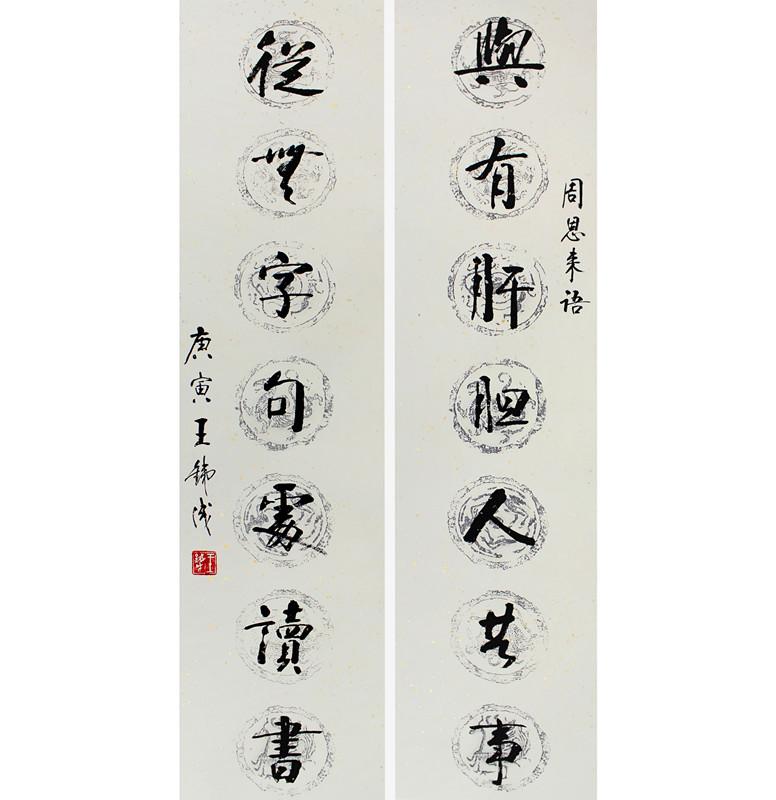 周恩来语
與有肝胆人共事
從無字句處讀書
庚寅王